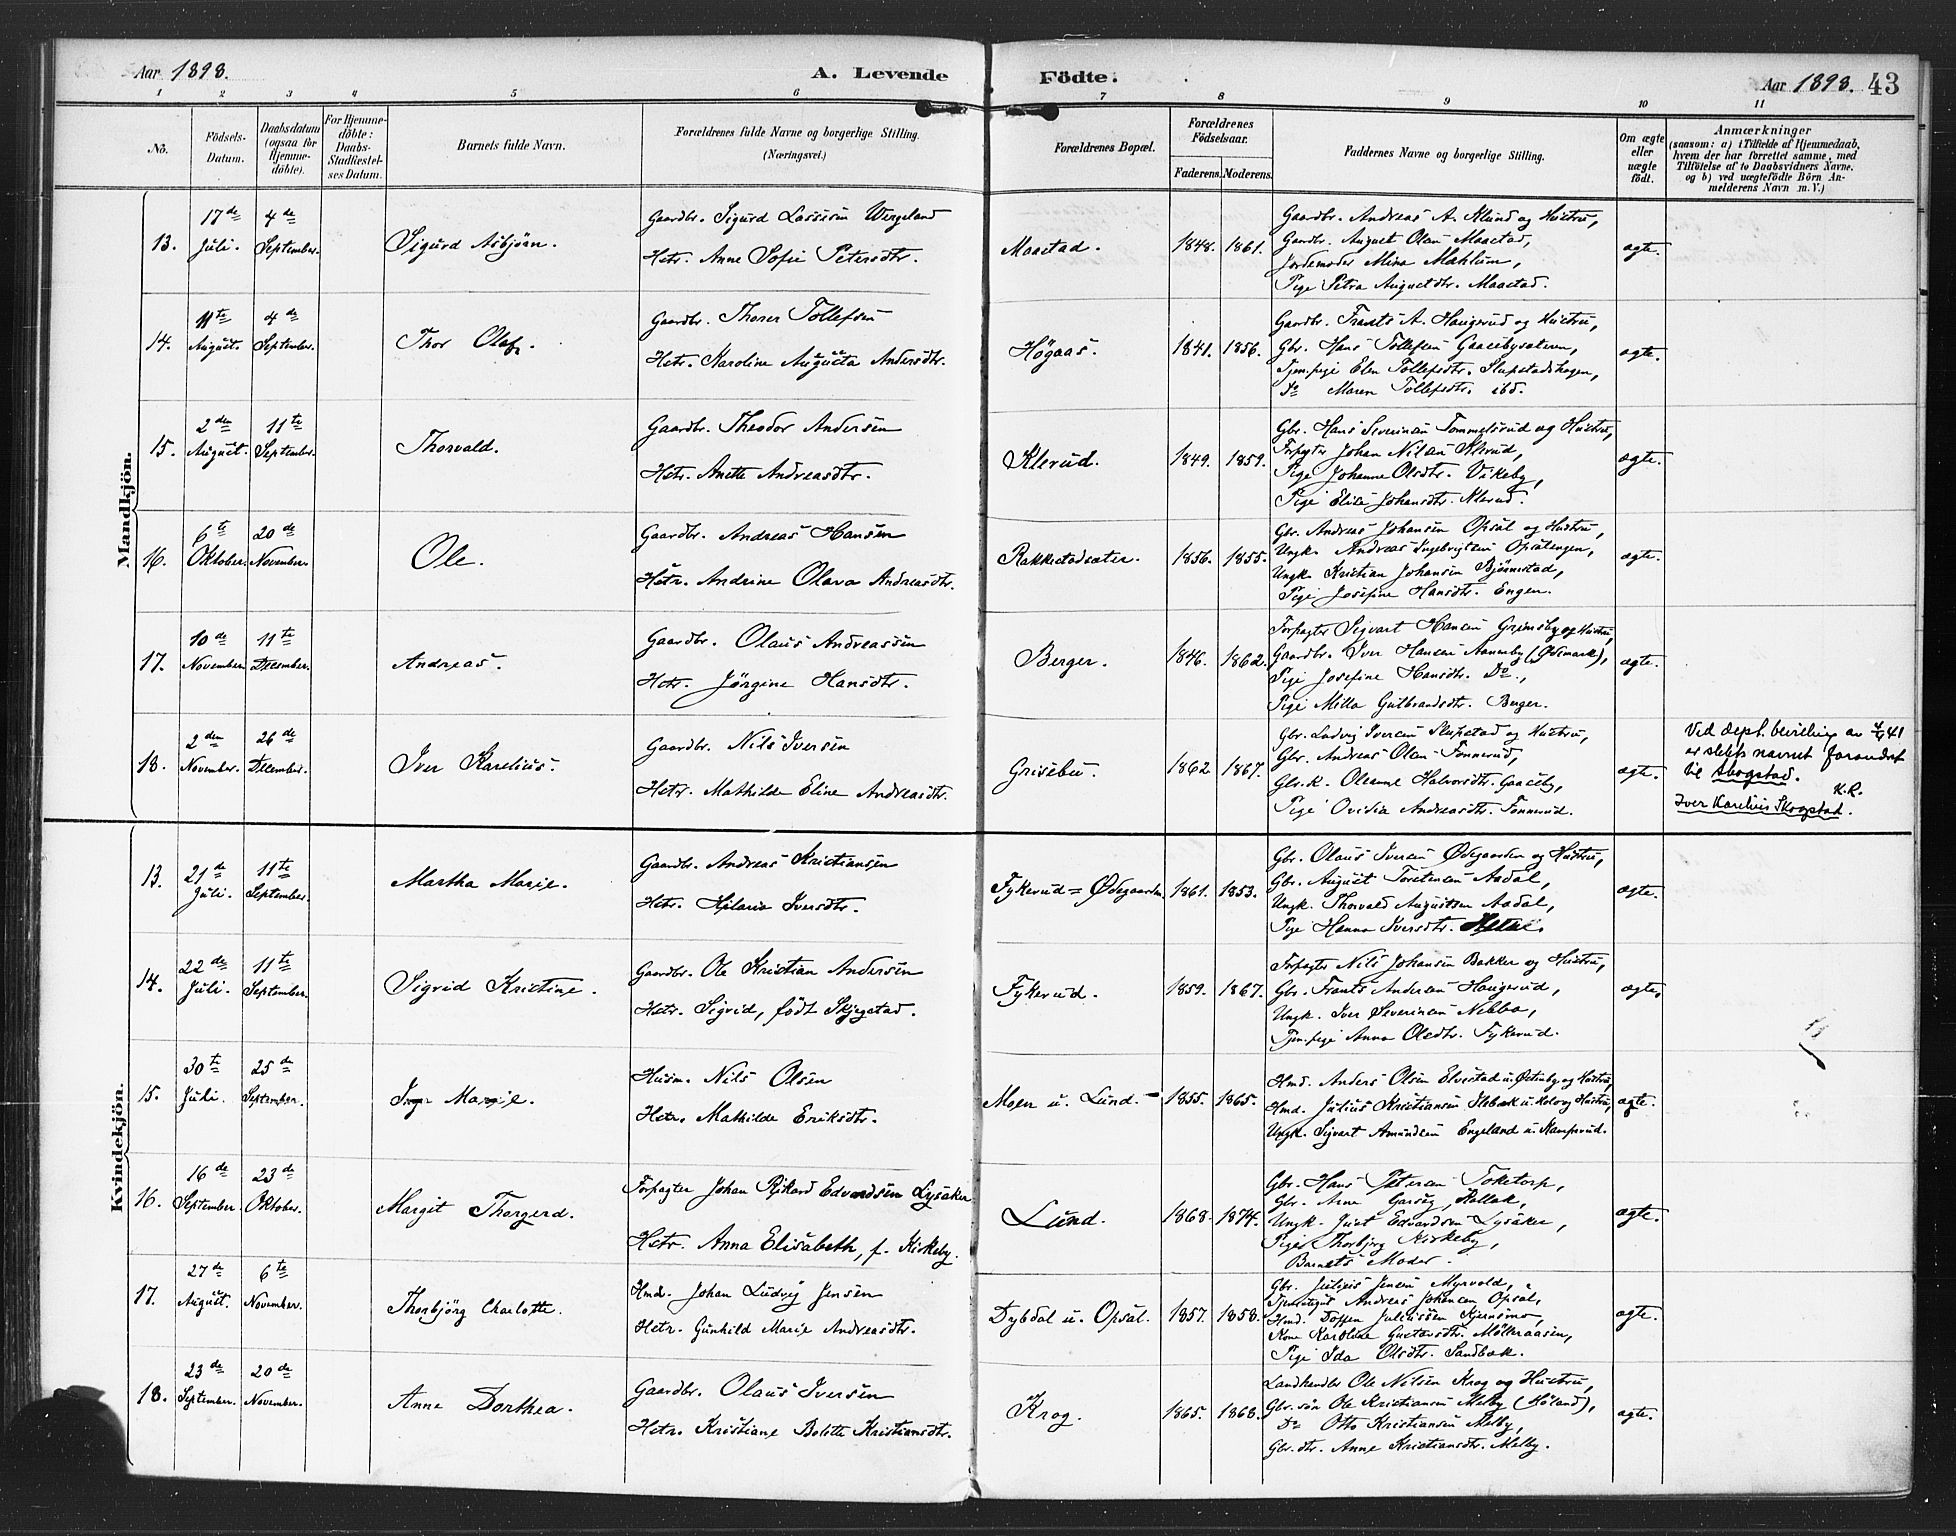 Aar 1898.
A. Levende Födte.
Aar 1898. 43
1 2 3 4 5 6 7 8 9 10 11
No.
Födsels-
Datum.
Daabsdatum
(ogsaa for
Hjemme-
döbte).
For Hjemme-
döbte:
Daabs-
Stadfæstel-
ses Datum.
Barnets fulde Navn.
Forældrenes fulde Navne og borgerlige Stilling.
(Næringsvei.)
Forældrenes Bopæl.
Forældrenes
Födselsaar.
Faderens. Moderens.
Faddernes Navne og borgerlige Stilling.
Om ægte
eller
uægte
födt.
Anmærkninger
(saasom: a) i Tilfælde af Hjemmedaab,
hvem der har forrettet samme, med
Tilföielse af to Daabsvidners Navne,
og b) ved uægtefödte Börn An-
melderens Navn m. V.)
Mandkjön.
13.
17de
Juli.
4de
September.
Sigurd Asbjörn.
Gaardbr. Sigurd Lassesen Wergeland
Hstr. Anne Sofie Petersdtr.
Maastad.
1848. 1861.
Gaardbr. Andreas A. Klund og Hustru,
Gaardbr. August Olsen Maastad,
Jordemoder Mina Mahlum,
Pige Petra Augustdtr. Maastad.
ægte.
14.
11te
August.
4de
September.
Thor Olaf.
Gaardbr. Thorer Tollefsen
Hstr. Karoline Augusta Andersdtr.
Högaas.
1841. 1856.
Gaardbr. Frants A. Haugerud og Hustru,
Gbr. Hans Tollefsen Gaasebysæteren,
Tjen.pige Elen Tollefsdtr. Slupstadhagen,
Do Maren Tollefsdtr. ibd.
ægte.
15.
2den
August.
11te
September.
Thorvald.
Gaardbr. Theodor Andersen
Hstr. Anette Andreasdtr.
Klerud.
1849. 1859.
Gbr. Hans Severinsen Tommelsrud og Hustru,
Forpagter Johan Nilsen Klerud,
Pige Johanne Olsdtr. Vikeby,
Pige Elise Johansdtr. Klerud.
ægte.
16.
6te
Oktober.
20de
November.
Ole.
Gaardbr. Andreas Hansen
Hstr. Andrine Olava Andreasdtr.
Rakkestadsæter.
1856. 1855.
Gbr. Andreas Johansen Opsal og Hustru,
Ungk. Andreas Ingebrigtsen Opsalengen,
Ungk. Kristian Johansen Bjørnstad,
Pige Josefine Hansdtr. Engen.
ægte.
17.
10de
November.
11te
December.
Andreas.
Gaardbr. Olaus Andreassen
Hstr. Jörgine Hansdtr.
Berger.
1846. 1862.
Forpagter Sigvart Hansen Grimsby og Hustru,
Gaardbr. Iver Hansen Aannerby (Ødemark),
Pige Josefine Hansdtr. Do.,
Pige Milla Gulbrandsdtr. Berger.
ægte.
18.
2den
November.
26de
December.
Iver Karelius.
Gaardbr. Nils Iversen
Hstr. Mathilde Eline Andreasdtr.
Grisebu.
1862 1867.
Gbr. Ludvig Iversen Slupstad og Hustru,
Gbr. Andreas Olsen Tønnerud,
Gbr.k. Oleanne Halvorsdtr. Gaaseby,
Pige Ovidia Andreasdtr. Tønnerud.
ægte.
Ved dept. bevilling av 41
er slektsnavnet forandret
til Skogstad.
K.R.
Iver Karelius Skogstad.
Kvindekjön.
13.
21de
Juli.
11te
September.
Martha Marie.
Gaardbr. Andreas Kristiansen
Hstr. Hilaria Iversdtr.
Fykerud = Ødegaarden
1861. 1853.
Gbr. Olaus Iversen Ødegaarden og Hustru,
Gbr. August Torstensen Aadal,
Ungk. Thorvald Augustsen Aadal,
Pige Hanna Iversdtr.
ægte.
14.
22de
Juli.
11te
September.
Sigrid Kristine.
Gaardbr. Ole Kristian Andersen
Hstr. Sigrid, født Skjegstad.
Fykerud.
1859. 1867.
Forpagter Nils Johansen Bakker og Hustru,
Gbr. Frants Andersen Haugerud,
Ungk. Iver Severinsen Nebba,
Tjen.pige Anna Olsdtr. Fykerud.
ægte.
15.
30te
Juli.
25de
September.
Inga Marie.
Husm. Nils Olsen
Hstr. Mathilde Eriksdtr.
Moen u. Lund. -
1855. 1865.
Hmd. Anders Olsen Elvestad u. Østenby og Hustru,
Hmd. Julius Kristiansen Slebak u. Holo og Hustru,
Ungk. Sigvart Amundsen Engeland u. Kamperud.
ægte.
16.
16de
September.
23de
Oktober.
Margit Thorgerd.
Forpagter Johan Rikard Edvardsen Lysaker
Hstr. Anna Elisabeth, f. Kirkeby.
Lund.
1868. 1874.
Gbr. Hans Petersen Toketorp,
Gbr. Arne Garseg, Kollak,
Ungk. Just Edvardsen Lysaker,
Pige Thorbjørg Kirkeby,
Barnets Moder.
ægte.
17.
27de
August.
6te
November.
Thorbjörg Charlotte.
Hmd. Johan Ludvig Jensen
Hstr. Gunhild Marie Andreasdtr.
Dybdal u. Opsal.
1857. 1858.
Gbr. Julius Jensen Myrvold,
Tjenestegut Andreas Johansen Opsal,
Hmd. Doffen Juliussen Kjernsmo,
Kone Karoline Gustavsdtr. Mölleraasen,
Pige Ida Olsdtr. Sandbæk.
ægte.
18.
23de
September.
20de
November.
Anne Dorthea.
Gaardbr. Olaus Iversen
Hstr. Kristiane Bolette Kristiansdtr.
Krog.
1865. 1868.
Landhandler Ole Nilsen Krog og Hustru,
Gbr.søn Ole Kristiansen Melby (Höland),
Do Otto Kristiansen Melby,
Gbr.dtr. Anne Kristiansdtr. Melby.
ægte.